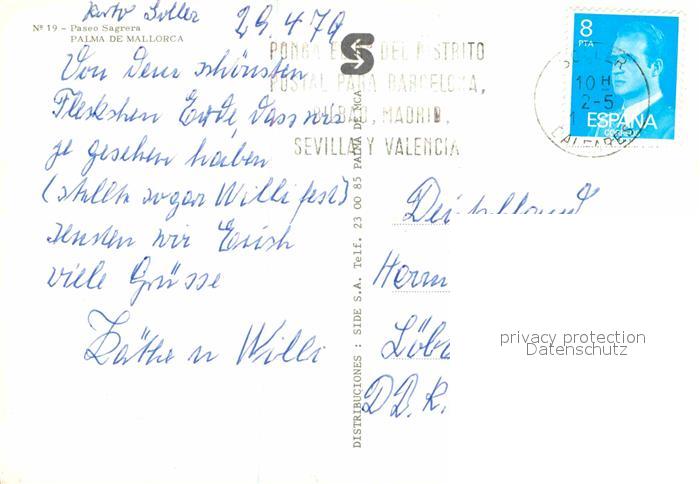 Porto Soller 29.4.79
Nº 19 - Paseo Sagrera
PALMA DE MALLORCA
Von dem schönsten
Fleckchen Erde, dass wir
je gesehen haben
(stellte sogar Willi fest)
senden wir Euch
viele Grüsse
Käthe u Willi
PONGA EL Nº DEL DISTRITO
POSTAL PARA BARCELONA,
BILBAO, MADRID,
SEVILLA Y VALENCIA
8
PTA
10 H
2-5
BALEARES
ESPAÑA
CORREOS
DISTRIBUCIONES : SIDE S.A. Telf. 23 00 85 PALMA DE MALLORCA
Deutschland
Herrn
Löb
D.D.R.
privacy protection
Datenschutz